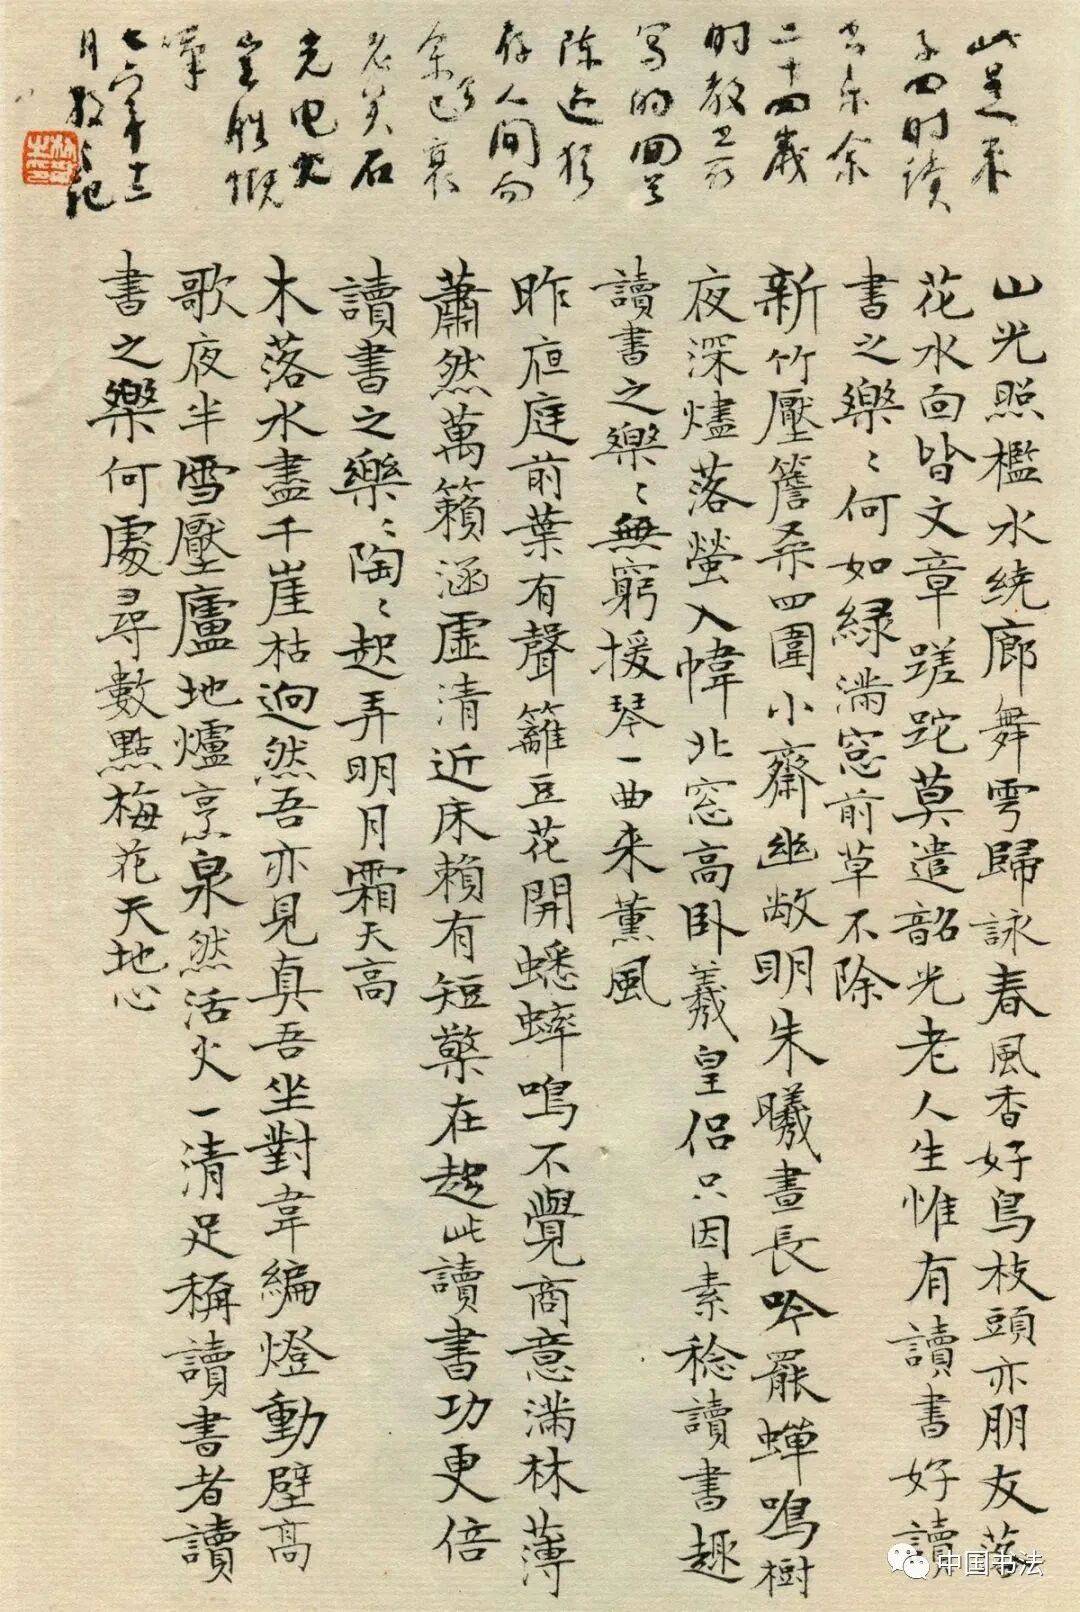 此是朱
子四时读
书乐余
二十四歲
时教
写的回首
陈迹犹
存人间而
余已衰
老矣石
光电火
岂胜慨
嘆
七六年十二
月散之记
山光照檻水繞廊舞雩歸詠春風香好鳥枝頭亦朋友落
花水面皆文章蹉跎莫遣韶光老人生惟有讀書好讀
書之樂〻何如緑滿窓前草不除
新竹壓簷桑四圍小齋幽敞明朱曦晝長吟罷蟬鳴樹
夜深燼落螢入幃北窓高卧羲皇侣只因素稔讀書趣
讀書之樂〻無窮援琴一曲来薰風
昨夜庭前葉有聲籬豆花開蟋蟀鳴不覺商意滿林薄
蕭然萬籟涵虛清近床賴有短檠在趂此讀書功更倍
讀書之樂〻陶〻起弄明月霜天高
木落水盡千崖枯迥然吾亦見真吾坐對韋編燈動壁高
歌夜半雪壓廬地爐烹泉然活火一清足稱讀書者讀
書之樂何處尋數點梅花天地心
中国书法